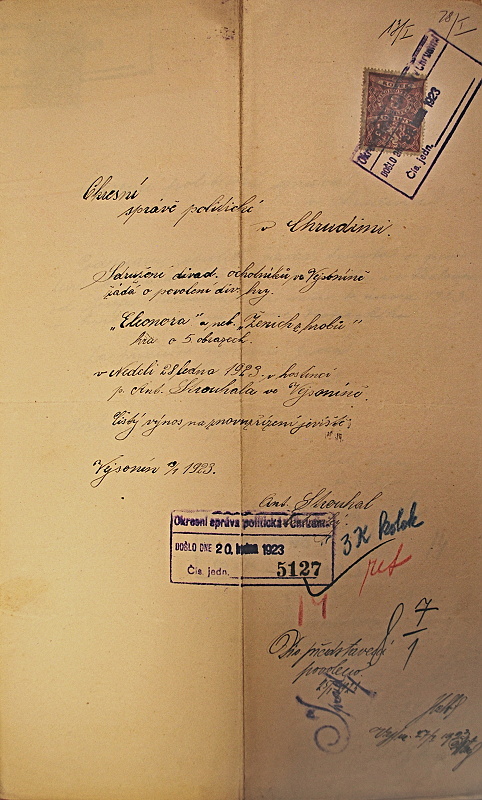 17/I 28/I
Okresní správa politická v Chrudimi
DOŠLO DNE 1923
Čís. jedn.
Okresní
správě politické
v Chrudimi.
Sdružení divad. ochotníků ve Vysoníně
žádá o povolení div. hry.
„Eleonora" a neb. „Ženich z hrobů"
hra o 5 obrazech.
v Neděli 28 ledna 1923. v hostinci
p. Ant. Strouhala ve Vysoníně.
Čistý výnos na znovuzřízení jeviště.
Vysonín 1923.
Ant. Strouhal
Okresní správa politická v Chrudimi
DOŠLO DNE 20. ledna 1923
Čís. jedn. 5127
3 K kolek
14
7
1
Dno představení
povoleno